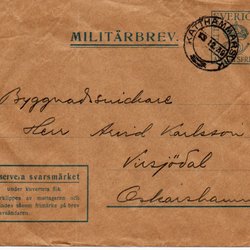 MILITÄRBREV.
SVERIGE
KATTHAMMARSVIK
Byggnadssnickare
Herr Arvid Karlsson
Virsjödal
Oskarshamn
serve:a svarsmärket
under kuvertets flik
rklippes av mottagaren och
ndes såsom frimärke på brev
avsändaren.